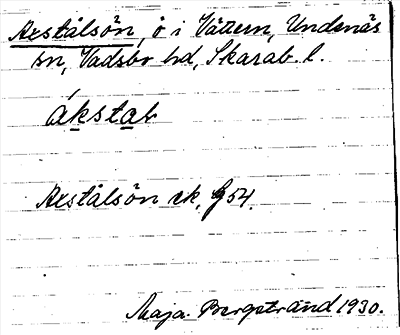 Axstålsön, ö i Vättern, Undenäs
sn, Vadsbo hd, Skarab. l.
ákstal
Axstålsön ek. G54.
Maja Bergstrand 1930.